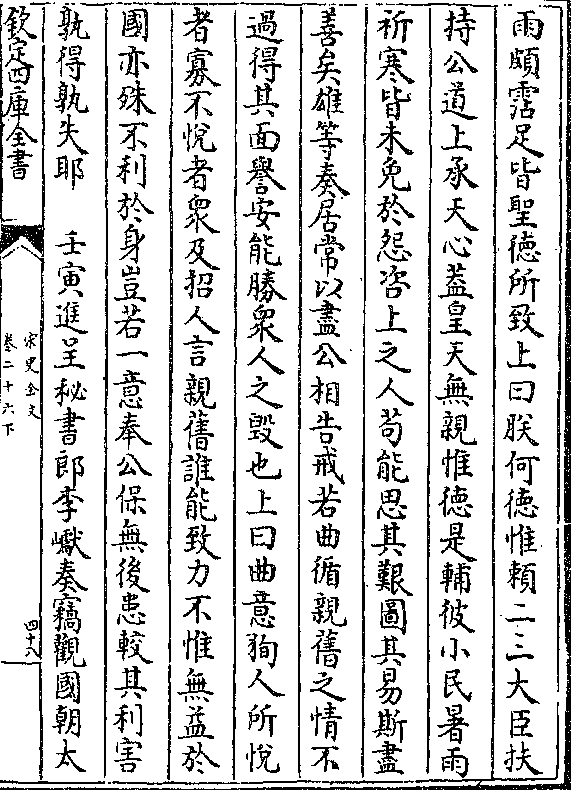 雨頗霑足皆聖徳所致上曰朕何徳惟頼二三大臣扶
持公道上承天心葢皇天無親惟徳是輔彼小民暑雨
祈寒皆未免於怨咨上之人苟能思其艱圖其易斯盡
善矣雄等奏居常以盡公相告戒若曲循親舊之情不
過得其面譽安能勝衆人之毀也上曰曲意狥人所悅
者寡不悅者衆及招人言親舊誰能致力不惟無益於
國亦殊不利於身豈若一意奉公保無後患較其利害
孰得孰失耶　壬寅進呈秘書郎李巘奏竊觀國朝太
欽定四庫全書
宋史全文
卷二十六下
四十六